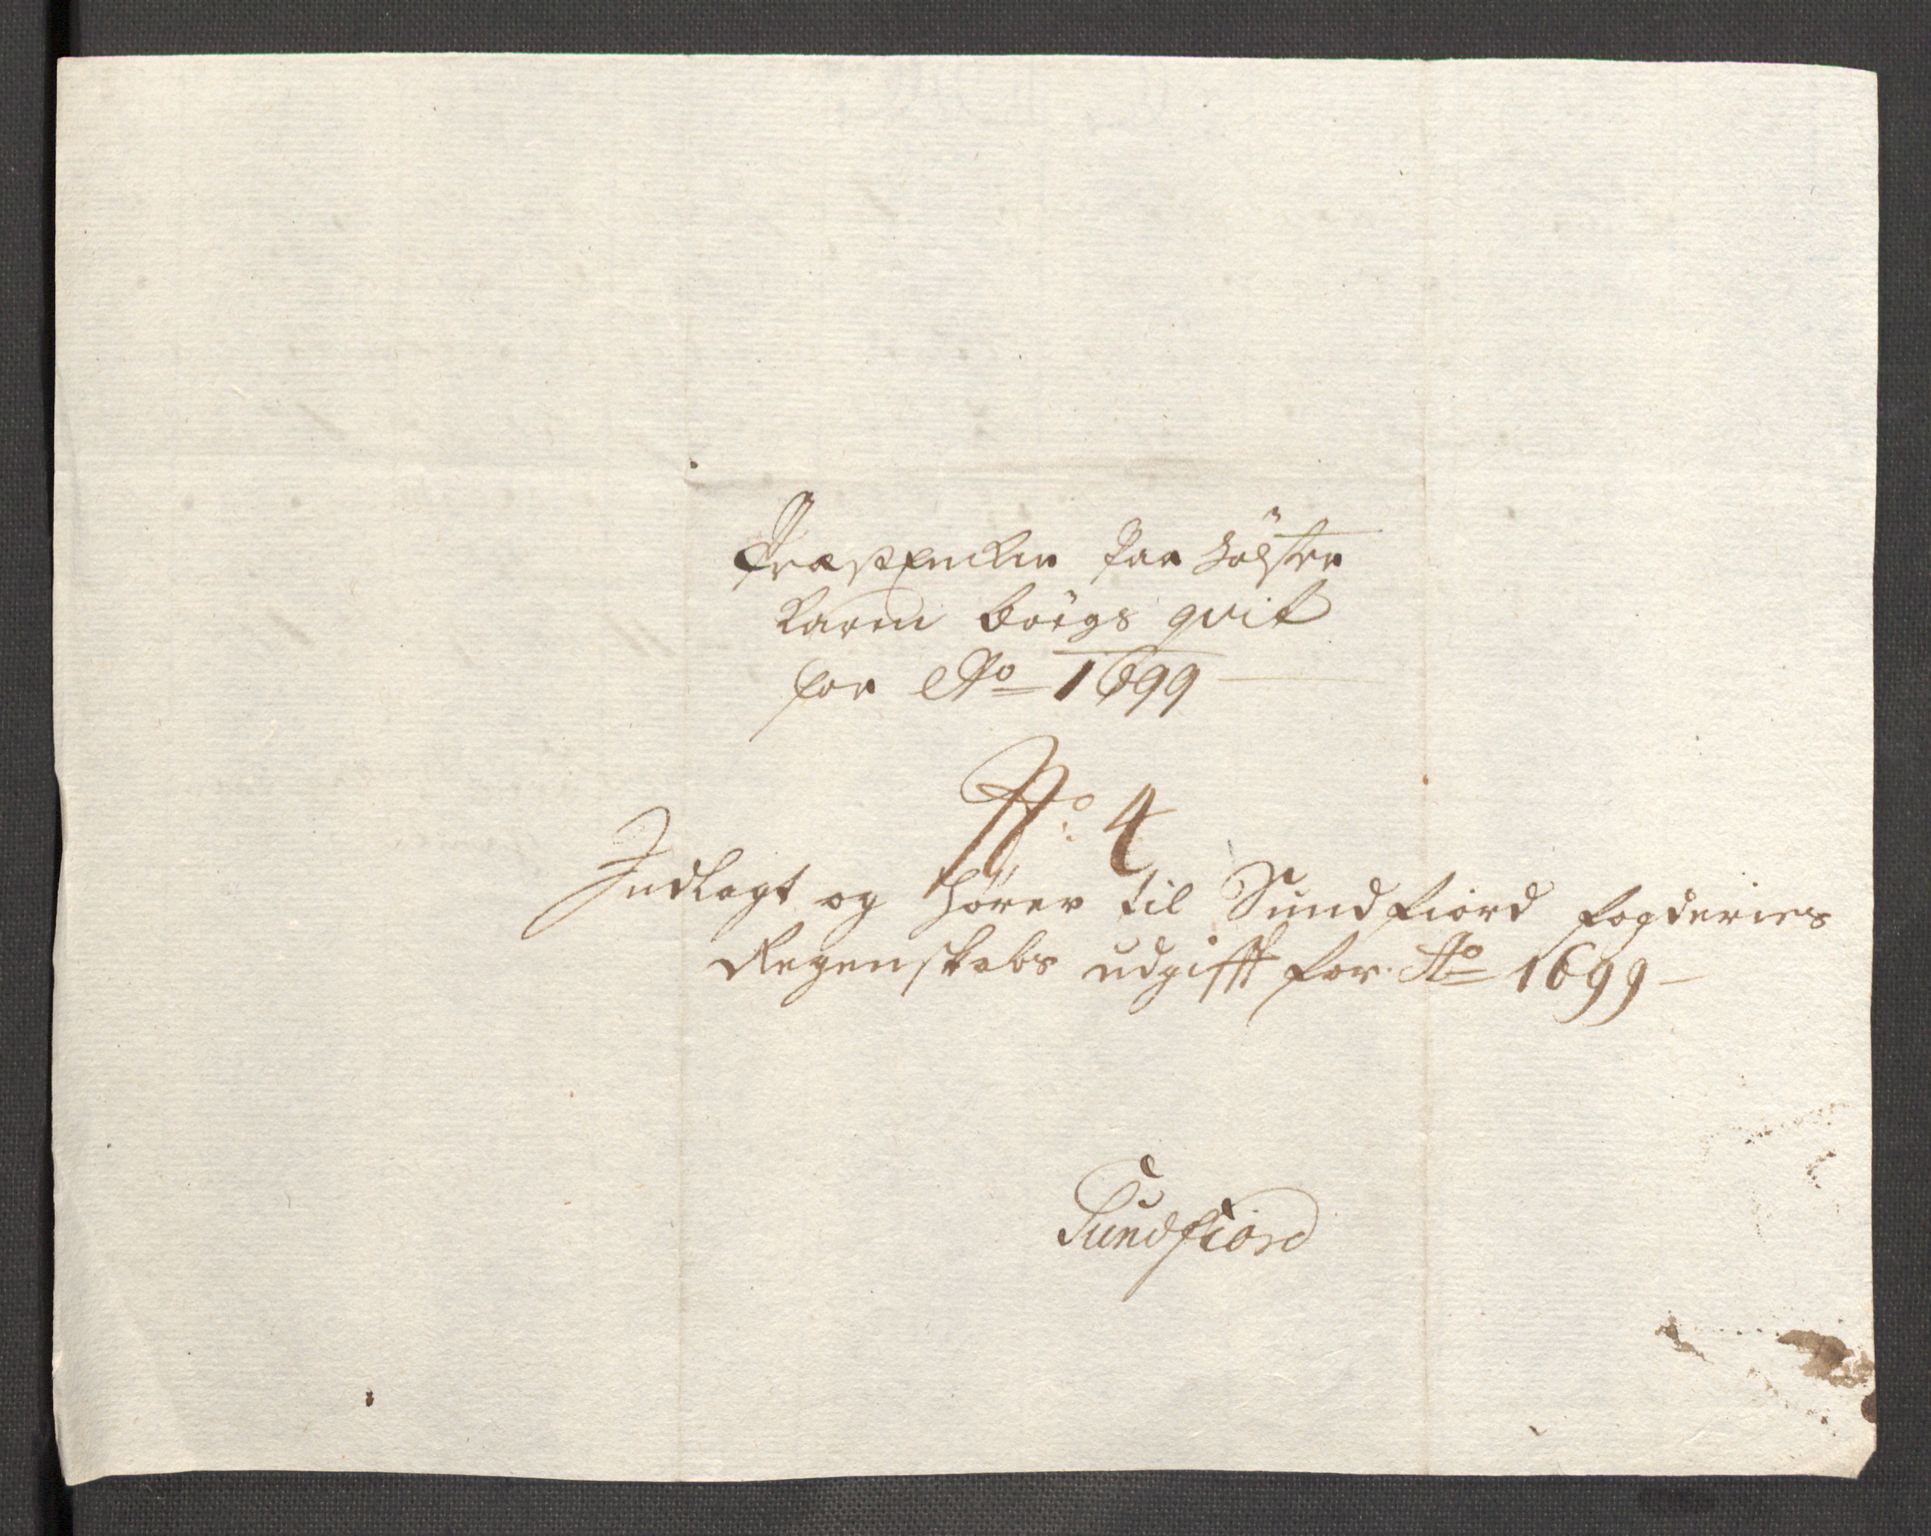 Præstencken paa Jølster
Karen Böigs qvit
for Ao 1699
No. 4
Indlagt og hører til Sundfiord fogderies
Regenskabs udgifft for Ao 1699
Sundfiord